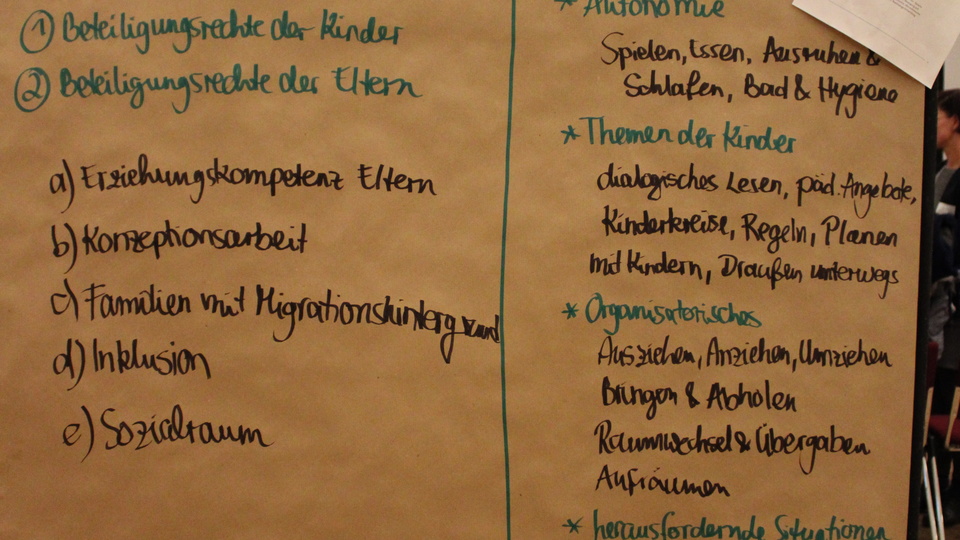 ① Beteiligungsrechte der Kinder
② Beteiligungsrechte der Eltern
a) Erziehungskompetenz Eltern
b) Konzeptionsarbeit
c) Familien mit Migrationshintergrund
d) Inklusion
e) Sozialraum
* Autonomie
Spielen, Essen, Ausruhen &
Schlafen, Bad & Hygiene
* Themen der Kinder
dialogisches Lesen, päd. Angebote,
Kinderkreise, Regeln, Planen
mit Kindern, Draußen unterwegs
* Organisatorisches
Ausziehen, Anziehen, Umziehen
Bringen & Abholen
Raumwechsel & Übergaben
Aufräumen
* herausfordernde Situationen